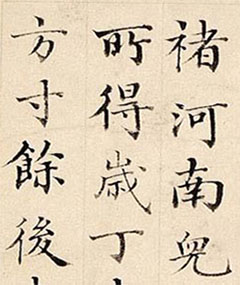 褚河南兒
所得歳丁
方寸餘後